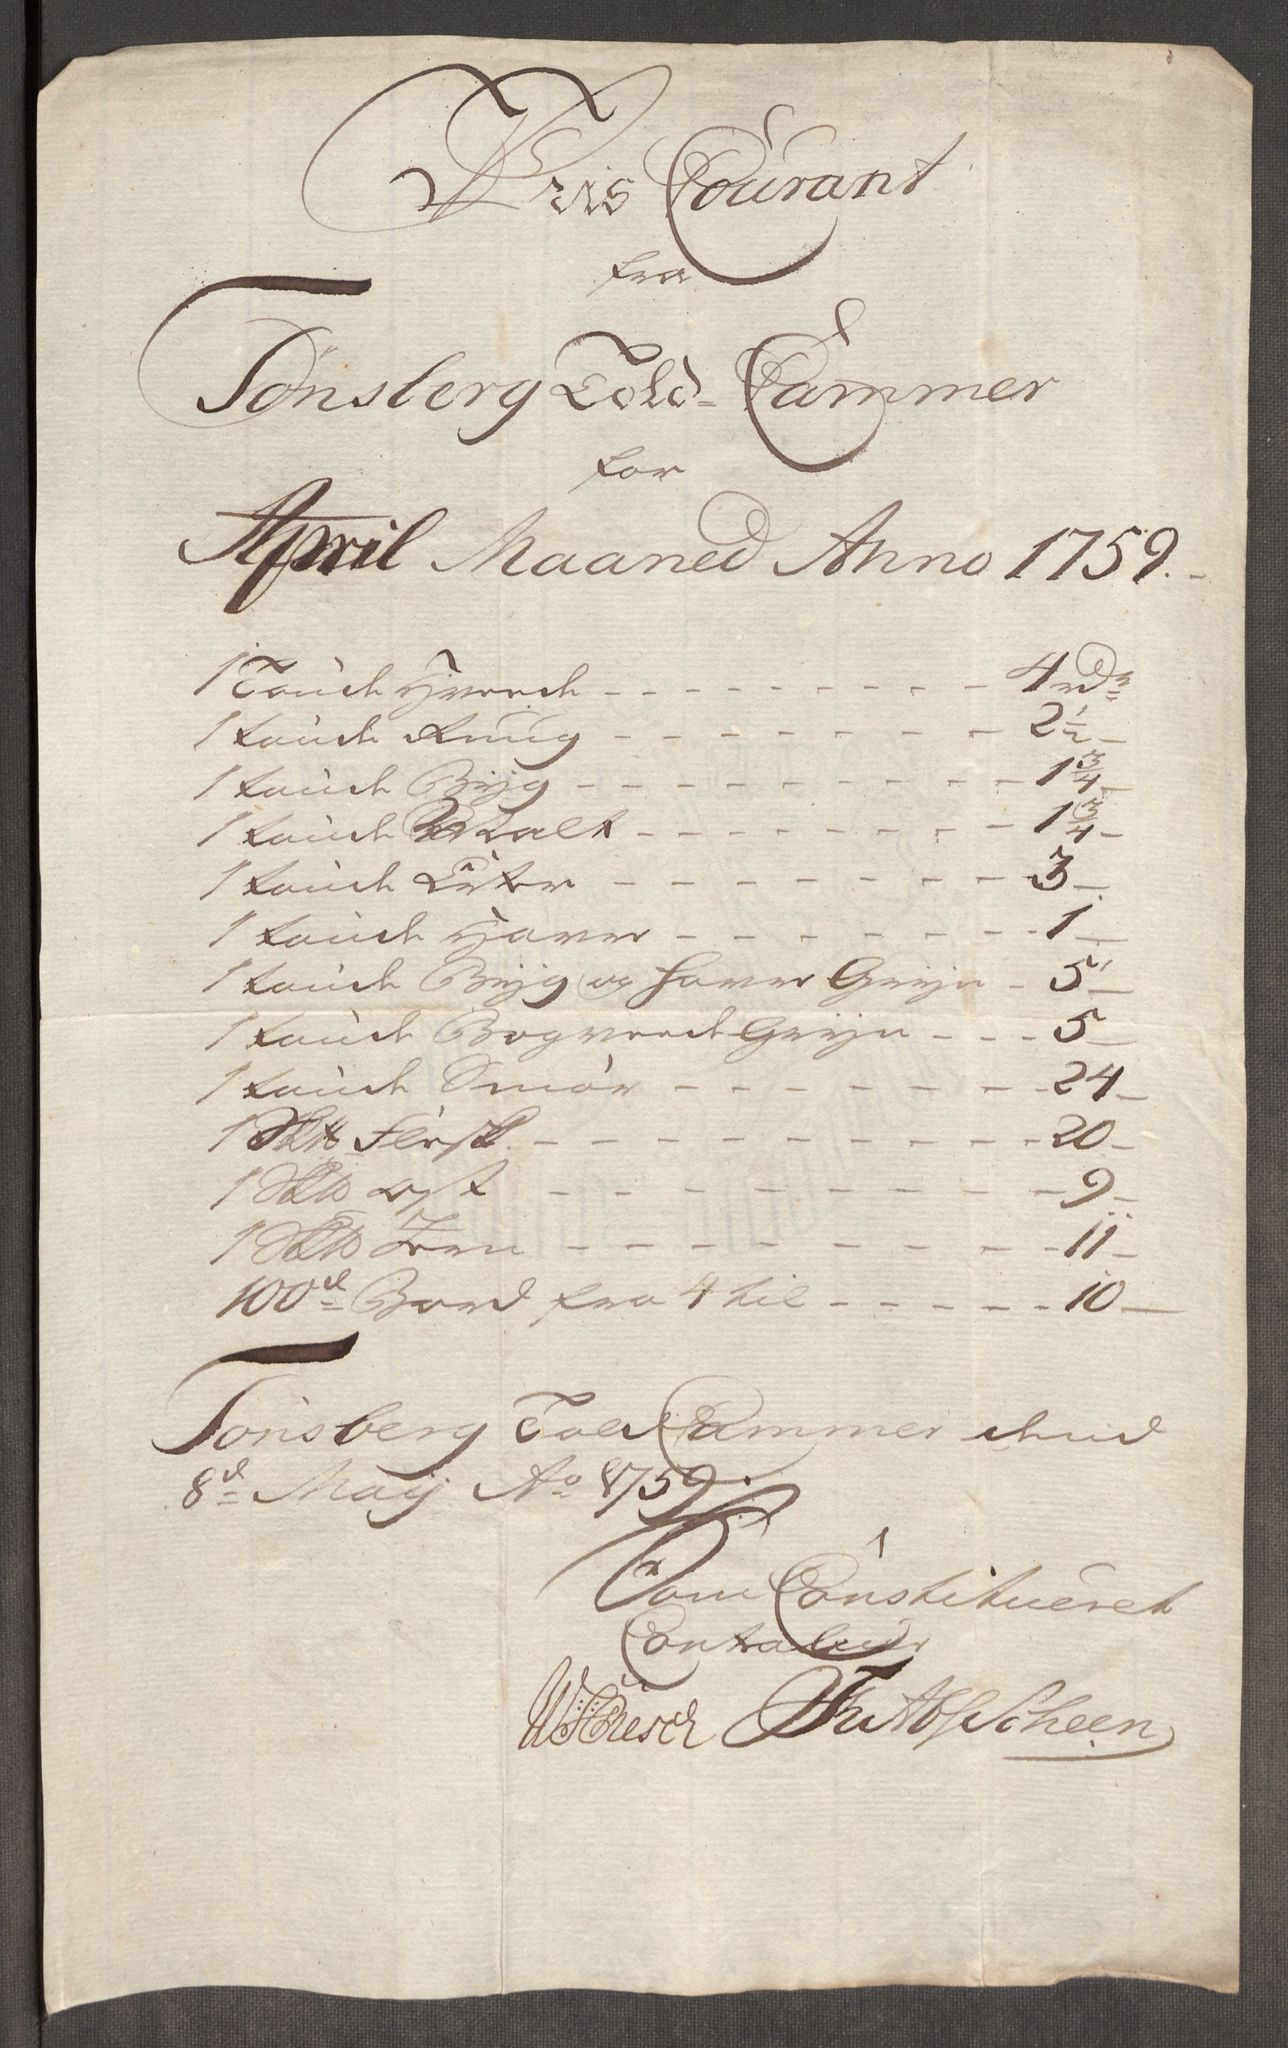 Pris Courant
fra
Tönsberg Told-Cammer
for
April Maaned Anno 1759.
1 Tønde Hvede - - - - - - - - 4 rdr
1 tønde Rúug - - - - - - - - 2 1/2 -
1 tønde Bÿg - - - - - - - - 1 3/4 -
1 tønde Malt - - - - - - - - 1 3/4 -
1 tønde Erter - - - - - - - - 3 -
1 tønde Haver - - - - - - - - 1 -
1 tønde Bÿg og Haver Grÿn - 5 -
1 tønde Bogvede Grÿn - - - 5 -
1 tønde Smör - - - - - - - - 24 -
1 Sk℔ Flesk - - - - - - - - 20 -
1 Sk℔ Ost - - - - - - - - 9 -
1 Sk℔ Jern - - - - - - - - 11 -
100de Bord fra 4 til - - - - - 10 -
Tönsberg Told Cammer dend
8de Maÿ Ao 1759.
Som Constitueret
Contraleur